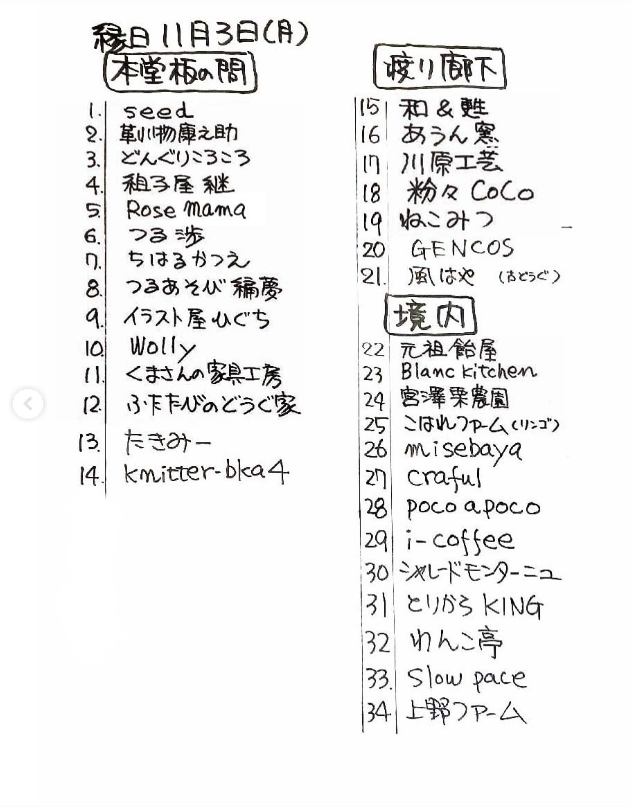 縁日 11月3日(月)
本堂板の間
1. seed
2. 革小物庫之助
3. どんぐりころころ
4. 組子屋 継
5. Rose Mama
6. つる 渉
7. ちはるかつえ
8. つるあそび 編夢
9. イラスト屋ひぐち
10. Wolly
11. くまさんの家具工房
12. ふたたびのどうぐ家
13. たきみー
14. kmitter-bka4
渡り廊下
15 和 & 甦
16 あうん窯
17 川原工芸
18 粉々 CoCo
19 ねこみつ
20 GENCOS
21. 風はや (古どうぐ)
境内
22 元祖 飴屋
23 Blanc kitchen
24 宮澤栗農園
25 こはれファーム(リンゴ)
26 misebaya
27 craful
28 poco a poco
29 i-coffee
30 シャレードモンターニュ
31 とりから KING
32 わんこ亭
33. Slow pace
34 上野ファーム